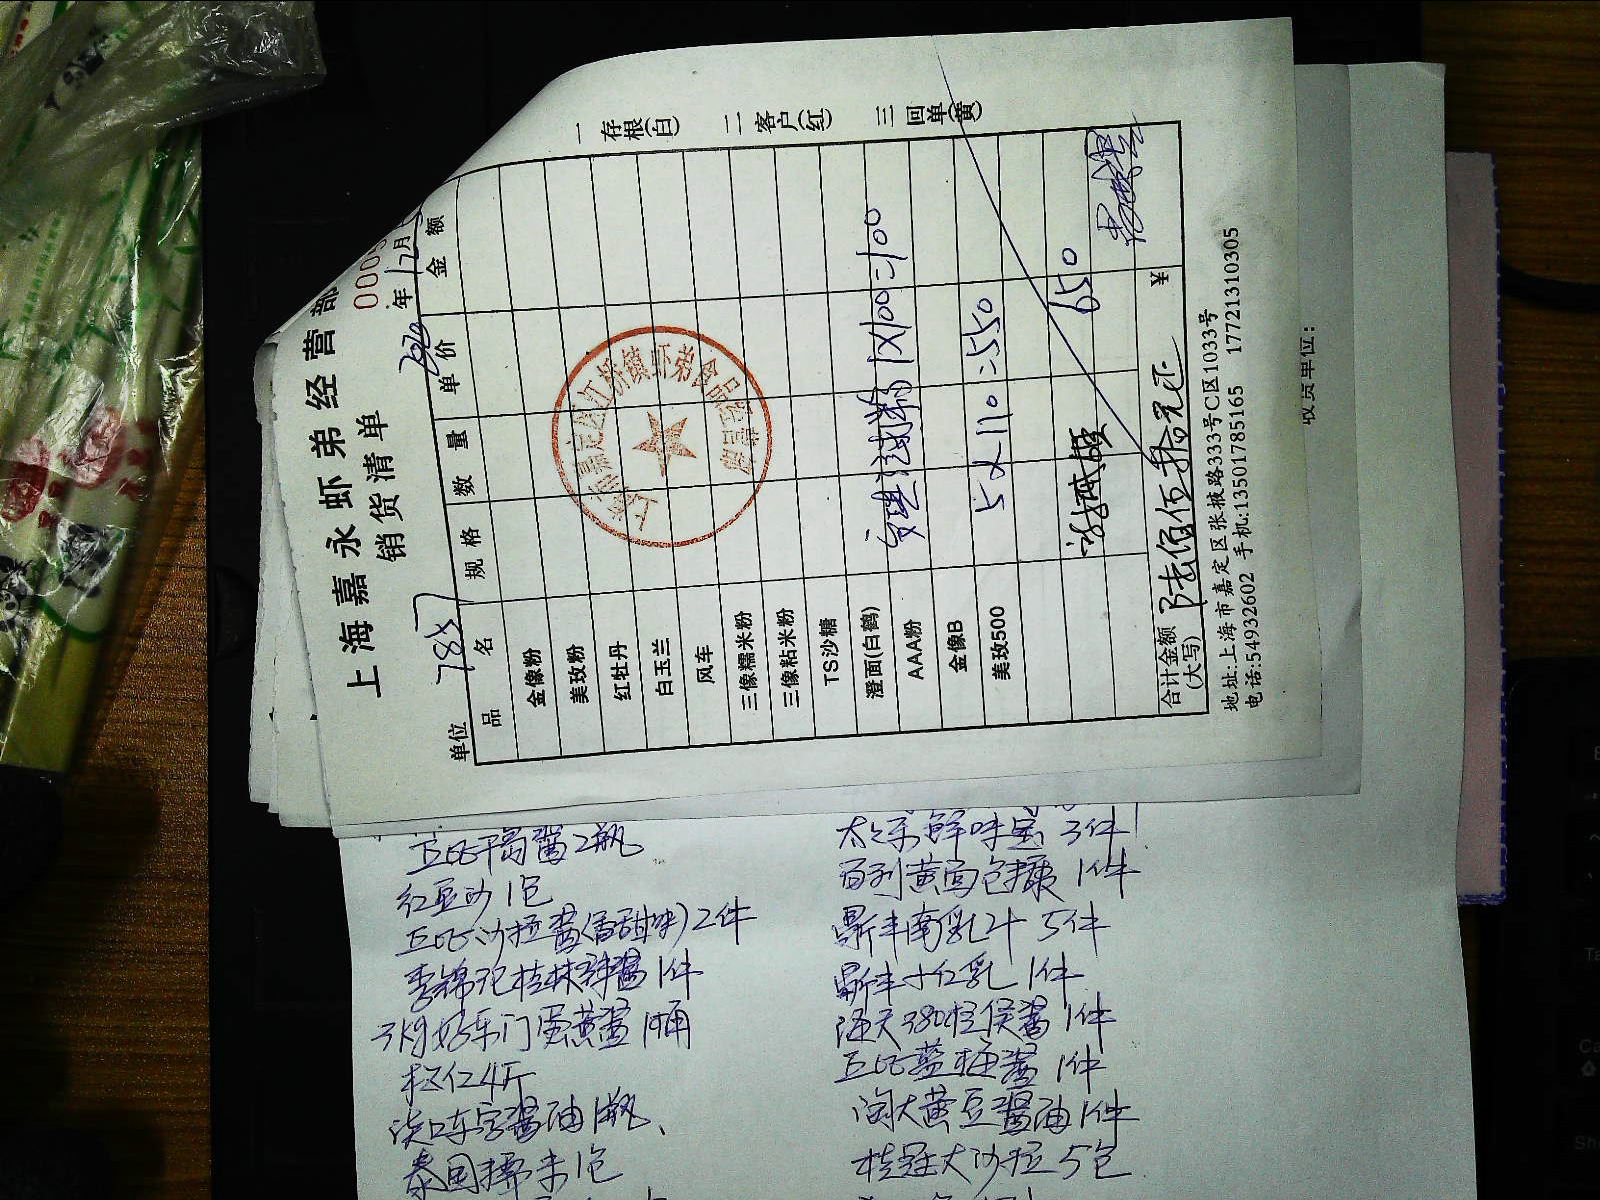 一 存根(白) 二 客户(红) 三 回单(黄)
上海嘉永虾弟经营部
销货清单
0005
年12月
单位 787
品名 规格 数量 单价 金额
金像粉
美玫粉
红牡丹
白玉兰
风车
三像糯米粉
三像粘米粉
TS沙糖
澄面(白鹤)
AAA粉 1X100=100
金像B
美玫500 5X110=550
650
合计金额(大写) 陆佰伍拾元正 ¥
地址:上海市嘉定区张掖路333号C区1033号
电话:54932602 手机:13501785165 17721310305
上海市嘉定区江桥镇虾弟食品经营部
收货单位:
丘比千岛酱2瓶
红豆沙1包
丘比沙拉酱(香甜味)2件
李锦记桂林辣酱1件
3kg好乐门蛋黄酱1桶
松仁4斤
淡口东字酱油1瓶、
泰国糯米1包
太太乐鲜味宝3件
百利黄面包糠1件
鼎丰南乳汁5件
鼎丰大红乳1件
海天380柱侯酱1件
丘比蓝莓酱1件
淘大黄豆酱油1件
桂冠大沙拉5包